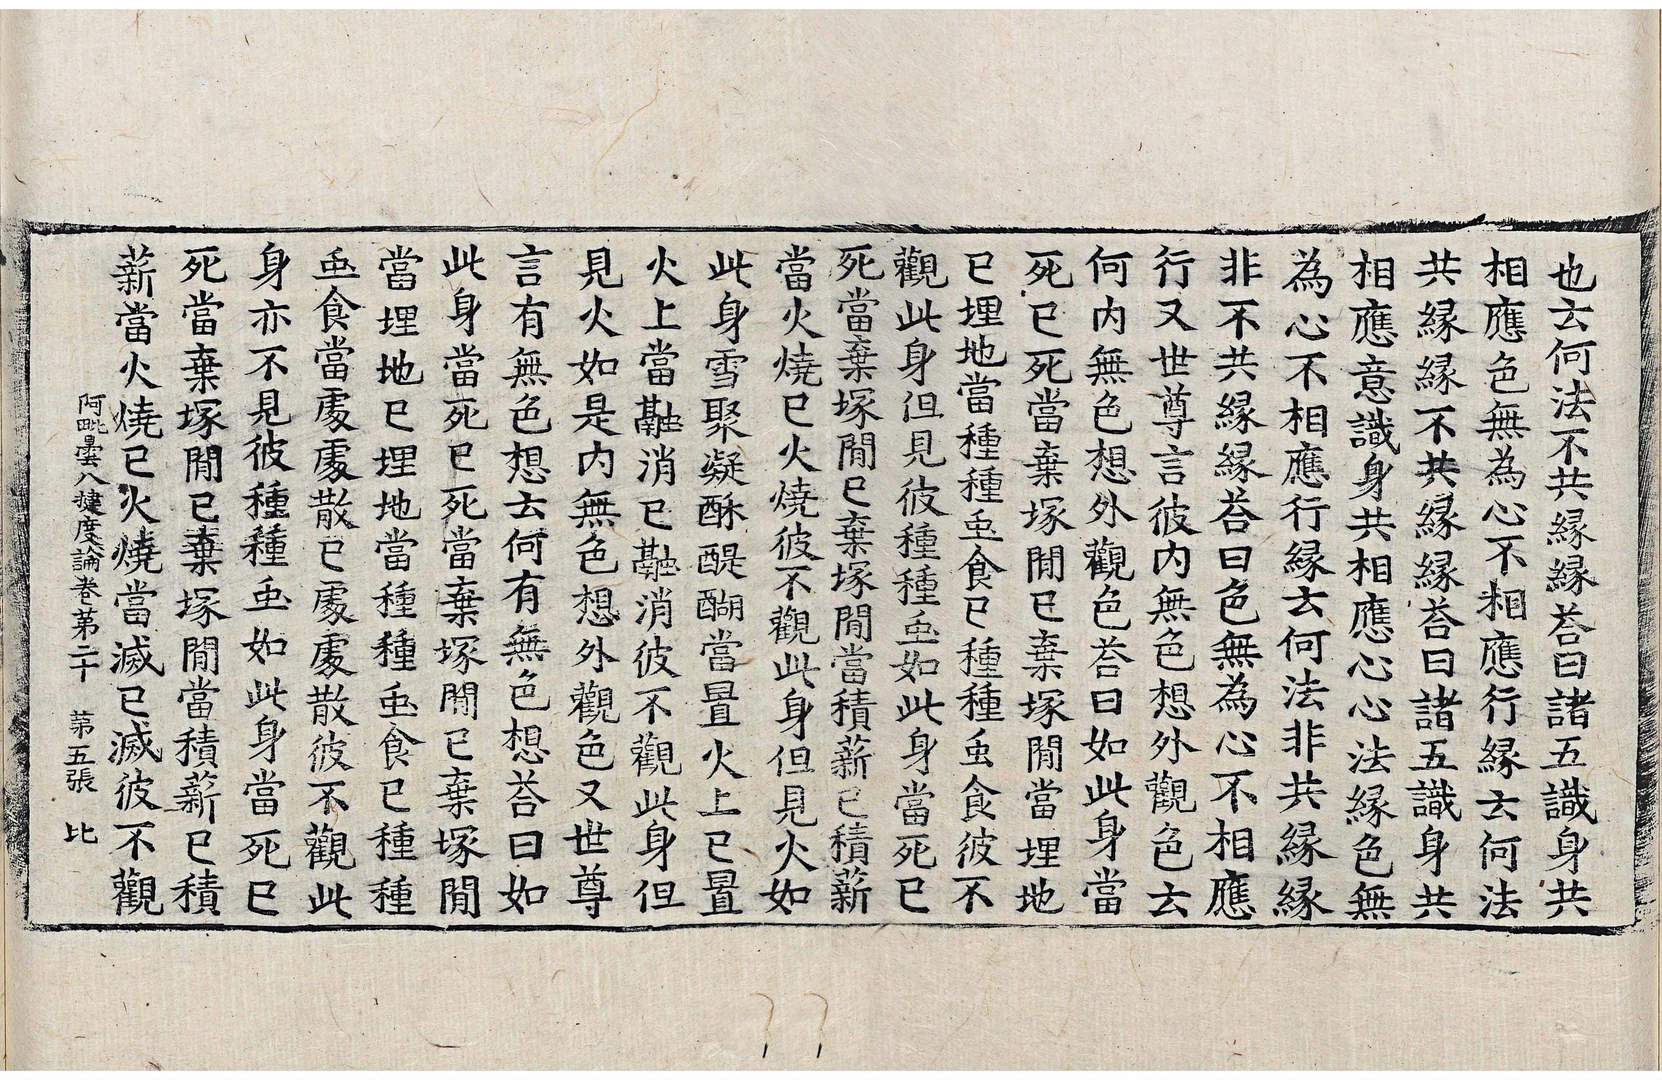 也云何法不共縁縁荅曰諸五識身共
相應色無為心不相應行縁云何法
共縁縁不共縁縁荅曰諸五識身共
相應意識身共相應心心法縁色無
為心不相應行縁云何法非共縁縁
非不共縁縁荅曰色無為心不相應
行又世尊言彼内無色想外觀色云
何内無色想外觀色荅曰如此身當
死已死當棄塚間已棄塚間當埋地
已埋地當種種䖝食已種種䖝食彼不
觀此身但見彼種種䖝如此身當死已
死當棄塚間已棄塚間當積薪已積薪
當火燒已火燒彼不觀此身但見火如
此身雪聚凝酥醍醐當置火上已置
火上當融消已融消彼不觀此身但
見火如是内無色想外觀色又世尊
言有無色想云何有無色想荅曰如
此身當死已死當棄塚間已棄塚間
當埋地已埋地當種種䖝食已種種
䖝食當處處散已處處散彼不觀此
身亦不見彼種種䖝如此身當死已
死當棄塚間已棄塚間當積薪已積
薪當火燒已火燒當滅已滅彼不觀
阿毗曇八揵度論卷第二十　第五張　比